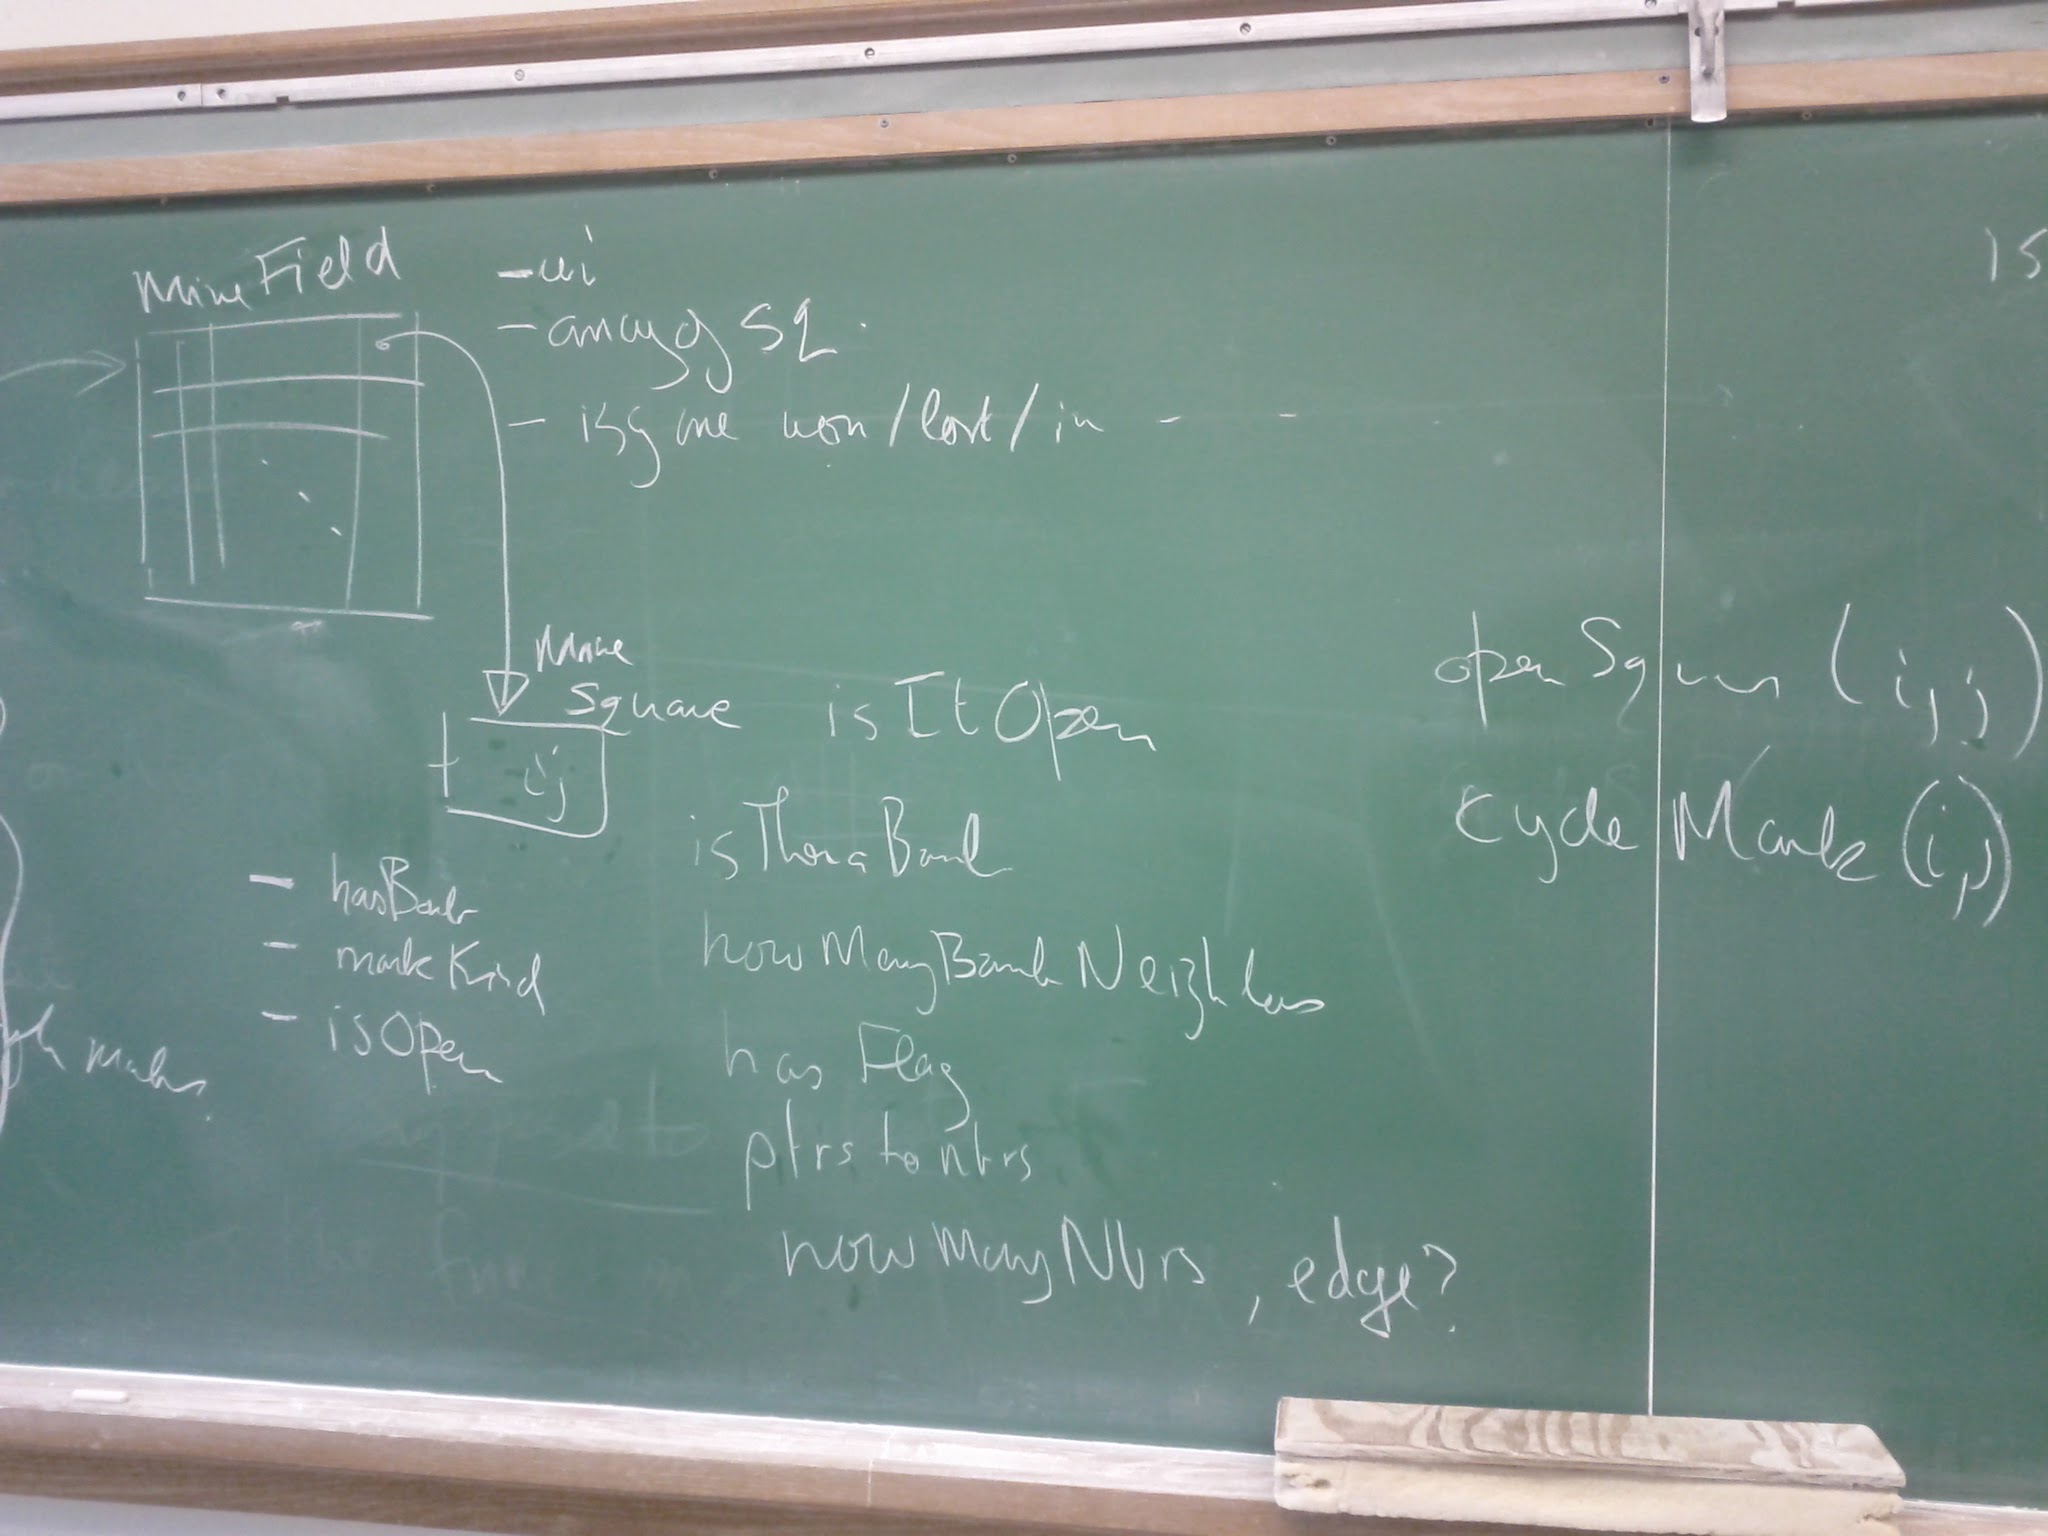 mineField
- ui
- array of sq.
- is game won/lost/in - -
mine
square
ij
- hasBomb
- markKind
- isOpen
isItOpen
isThereaBomb
howManyBombNeighbors
hasFlag
ptrs to nbrs
howManyNbrs, edge?
openSquare (i,j)
cycleMark (i,j)
is